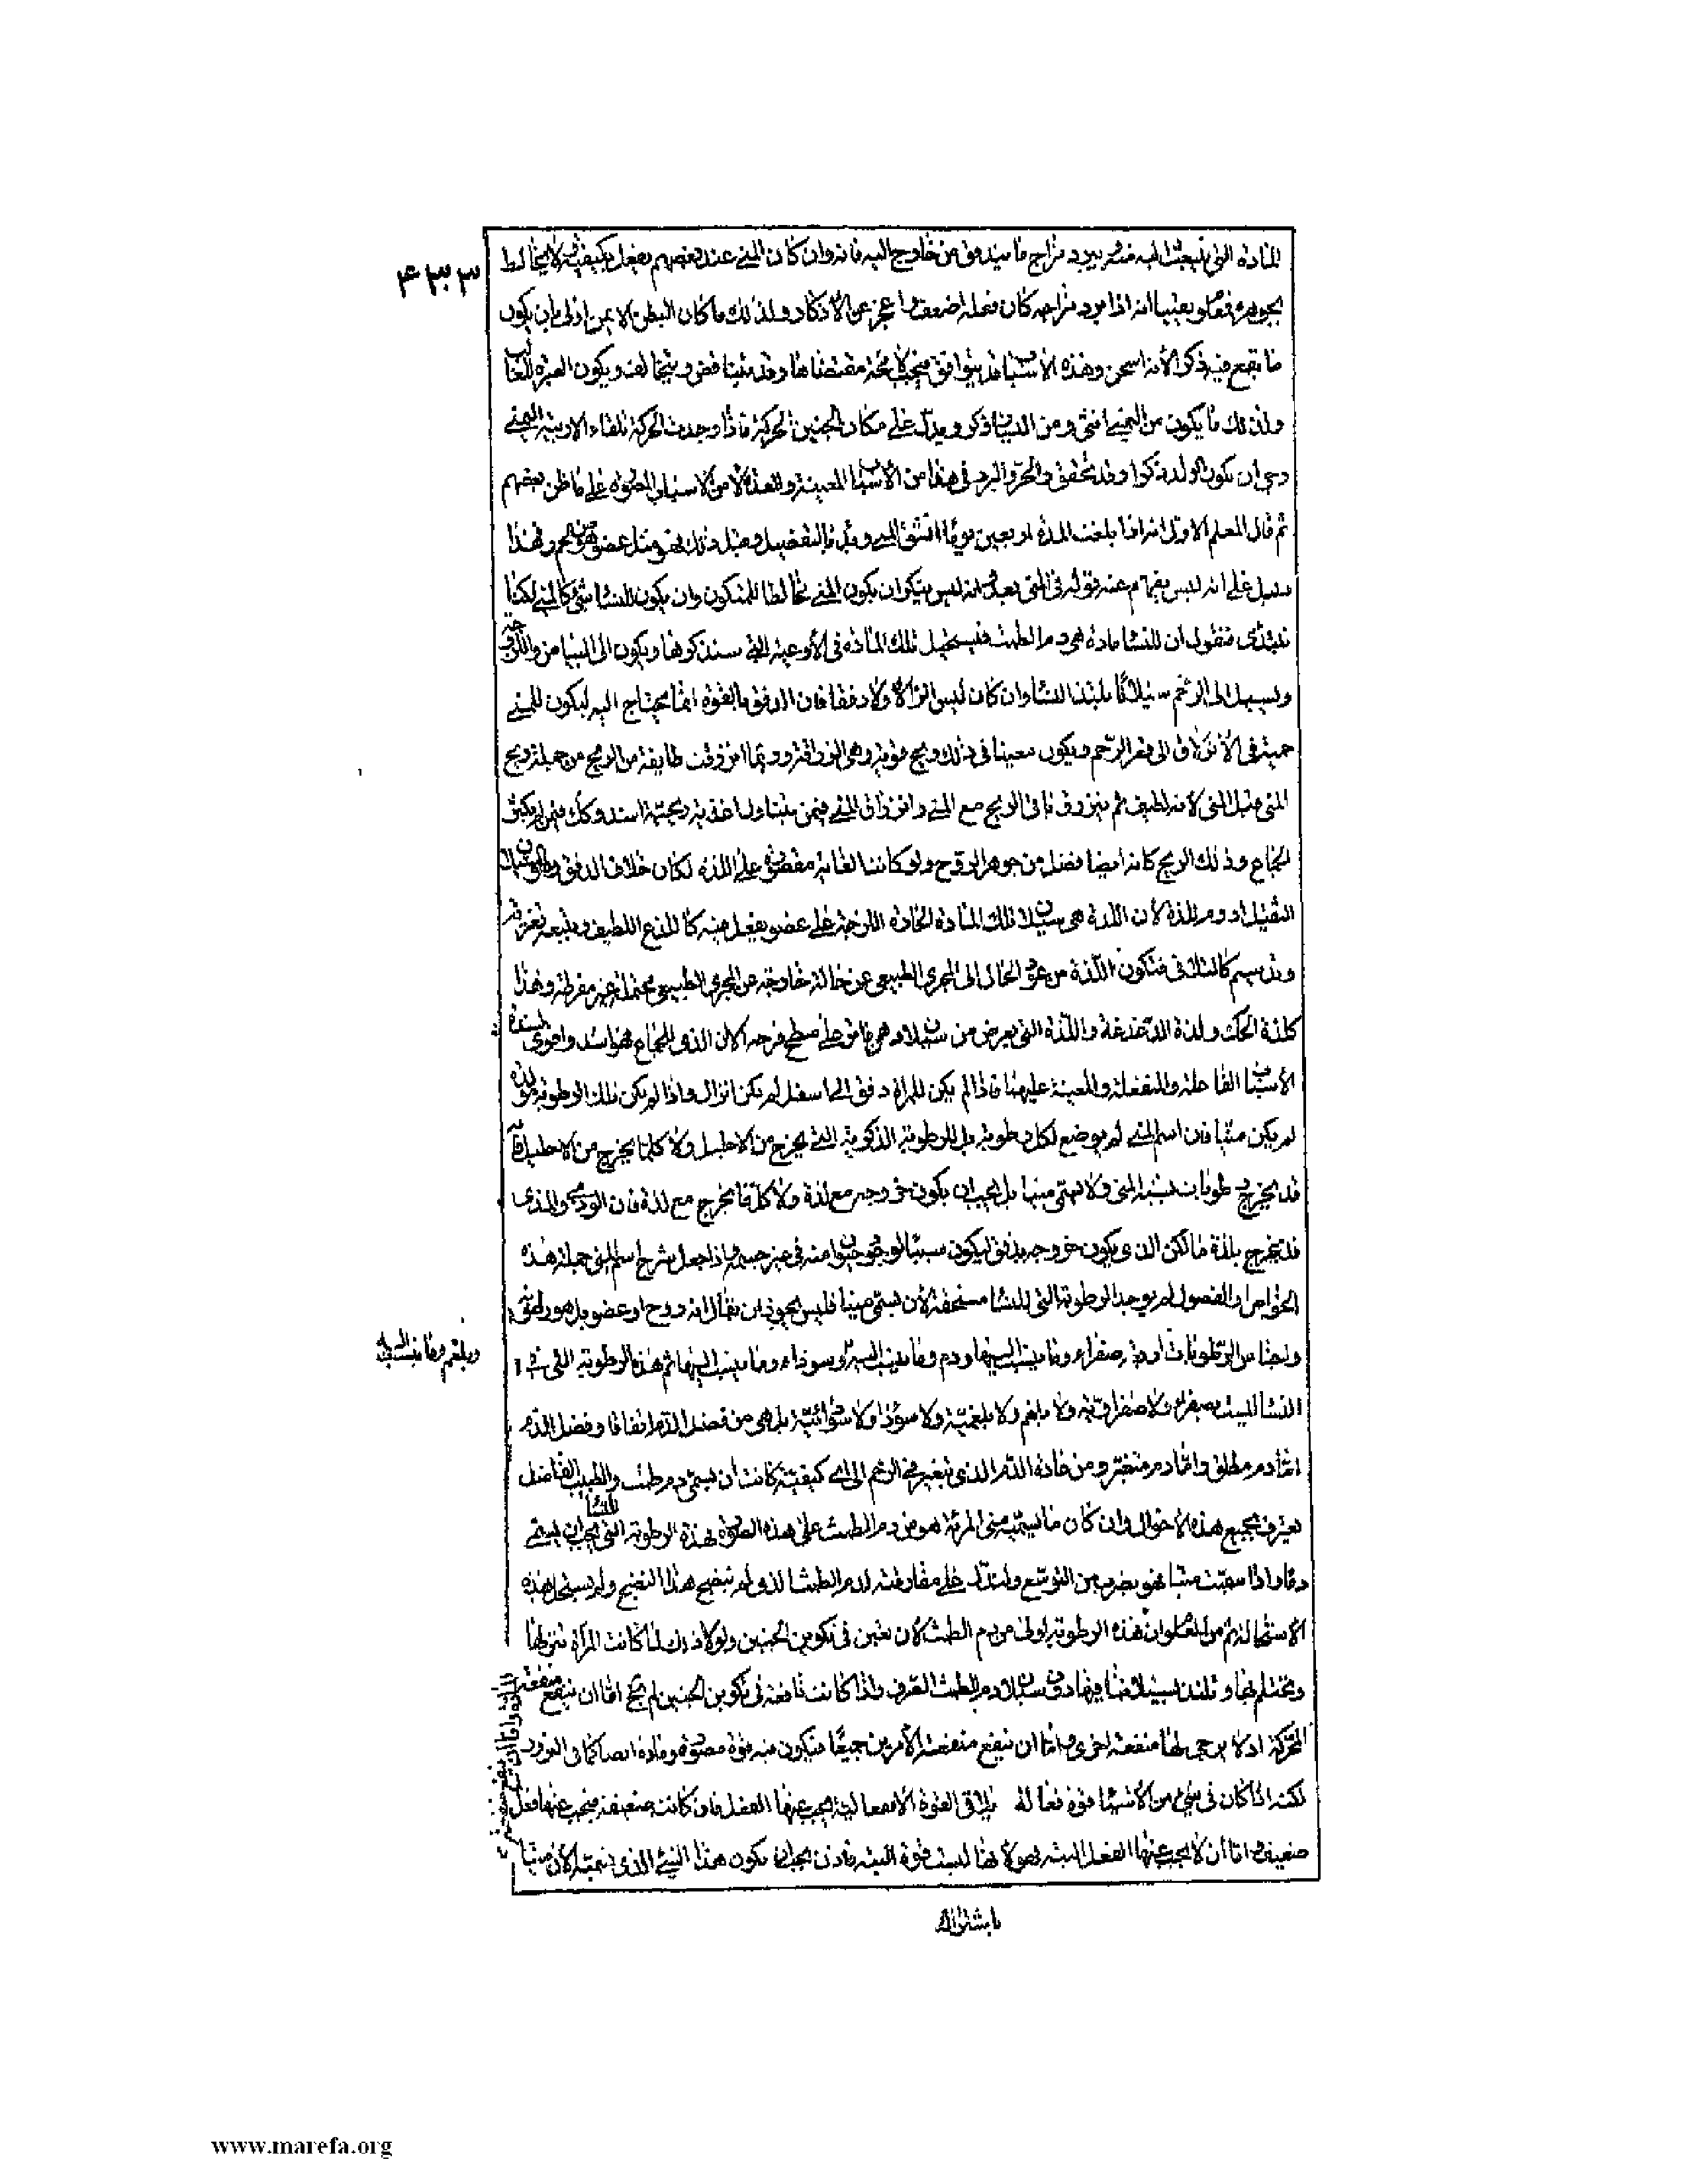 ٤٣٣
المادة التى تنبعث اليه منه يبرد مزاج ما يندفق من خارج اليه فانه وان كان المنى عند بعضهم يفعل بكيفيته لا يخالط
بجوهره فعلو يعنيا انه اذا برد مزاجه كان فعله اضعف واعجز عن الأذكار ولذلك ما كان البطن الايمن اولى بان يكون
ما يقع فيه ذكرا لأنه اسخن وهذه الأسباب قد يتوافق مقتضاها وقد يتناقض ويتخالف ويكون العبرة للغالب
ولذلك ما يكون من اليمين انثى ومن اليسار ذكر ويدل على مكان الجنين الحركة فاذا وجدت الحركة تلقاء الاربية اليمنى
رجى ان يكون الولد ذكرا وقد تحقق والحر والبرد فى هذا من الأسباب المعينة والمعدة لا من الاسباب المصورة على ما ظن بعضهم
ثم قال المعلم الاول انه اذا بلغت المدة اربعين يوما انشق السقط وقبل بالتفصيل وقبل ذلك فهو مثل عضو من لحم وهذا
دليل على انه ليس يفهم عنه قوله فى المنى بعد انه ليس ينكر ان يكون المنى مخالطا للمتكون وان يكون للنساء شئ كالمنى لكنا
نبتدى فنقول ان للنساء مادة هى دم الطمث فيستحيل تلك المادة فى الأوعية التى سنذكرها ويكون الى البياض واللزوجة
ويسيل الى الرحم سيلانا يلتذ النساء وان كان ليس انزالا ولا دفقا فان الدفق بالقوة انما يحتاج اليه ليكون للمنى
حمية فى الأنزلاق الى قعر الرحم ويكون معينا فى ذلك ريح قوية وهى الزراقة وربما انزرقت طايفة من الريح من جملة ريح
المنى قبل المنى لأنه لطيف ثم ينزرق باقى الريح مع المنى وانزراق المنى فيمن يتناول اغذية ريحية اشد وكك فيمن لم يكثر
الجماع وذلك الريح كانه ايضا فضل من جوهر الروح ولو كانت الغاية مقصورة على اللذة لكان خلاف الدفق والسيلان
الثقيل ادوم للذة لأن اللذة هى سيلان تلك المادة الحادة اللزجة على عضو يفعل فيه كاللذع اللطيف ويتبعه تغرية
وتدسيم كالتلافى فتكون اللذة من عود الحال الى المجرى الطبيعى عن حالة خارجة عن المجرى الطبيعى محتملة غير مفرطة وهذا
كلذة الحك ولذة الدغدغة واللذة التى يعرض من سيلان دهن فاتر على سطح قرحة الا ان الذى للجماع فهو اشد واقوى لشدة
الأسباب الفاعلة والمنفعلة والمعينة عليها فاذا لم يكن للمراة دفق الى اسفل لم يكن انزال واذا لم يكن تلك الرطوبة مولدة
لم يكن منيا فان اسم المنى لم يوضع لكل رطوبة بل للرطوبة الذكورية التى يخرج من الاحليل ولا كلما يخرج من الاحليل فانه
قد يخرج رطوبات يشبه المنى ولا يسمى منيا بل يجب ان يكون خروجه مع لذة ولا كل ما يخرج مع لذة فان الودى والمذى
قد يخرج بلذة ما لكن الذى يكون خروجه بدفق ليكون سببا لوجود حيوان منه فى غير جسمه فاذا جعل شرح اسم المنى جملة هذه
الخواص والفصول لم يوجد الرطوبة التى للنساء مستحقة لأن يسمى منيا فليس يجوز ان يقال انه روح او عضو بل هو رطوبة
واجناس الرطوبات اربعة صفراء وما ينسب اليها ودم وما ينسب اليه وسوداء وما ينسب اليها ثم هذه الرطوبة التى فى
وبلغم وما ينسب اليه
النساء ليست بصفراء ولا صفراوية ولا بلغم ولا بلغمية ولا سوداء ولا سوداوية بل هى من فضل الدم اتفاقا وفضل الدم
اما دم مطلق واما دم متغير ومن عادة الدم الذى تغير فى الرحم الى اى كيفية كانت ان يسمى دم طمث والطبيب الفاضل
يعترف بجميع هذه الاحوال وان كان ما يسميه منى المرئة هو من دم الطمث على هذه الصورة فهذه الرطوبة التى للنساء يجب ان يسمى
دما واذا سميت منيا فهو بضرب من التوسع وليدل على مفارقته لدم الطمث الذى لم ينضج هذا النضج ولم يستحل هذه
الأستحالة ثم من المعلوم ان هذه الرطوبة اولى من دم الطمث لأن تعين فى تكوين الجنين ولولا ذلك لما كانت المرأة تنزلها
وتحتلم بها وتلتذ بسيلانها فيها دون سيلان دم الطمث الصرف واذا كانت نافعة فى تكوين الجنين لم يخل اما ان ينفع منفعة
المحركة اذ لا يرجى لها منفعة اخرى واما ان ينفع منفعة الأمرين جميعا فيكون فيه قوة مصورة ومادة ايضا كما فى البزور
لكنه اذا كان فى شئ من الأشياء قوة فعالة يلاقى القوة الأنفعالية يجب عنها الفعل فان كانت ضعيفة فيجب عنها فعل
ضعيف واما ان لا يجب عنها الفعل البتة فهو لأنها ليست قوة البتة فاذن يجب ان يكون هذا الشئ الذى نسميه الأن منيا